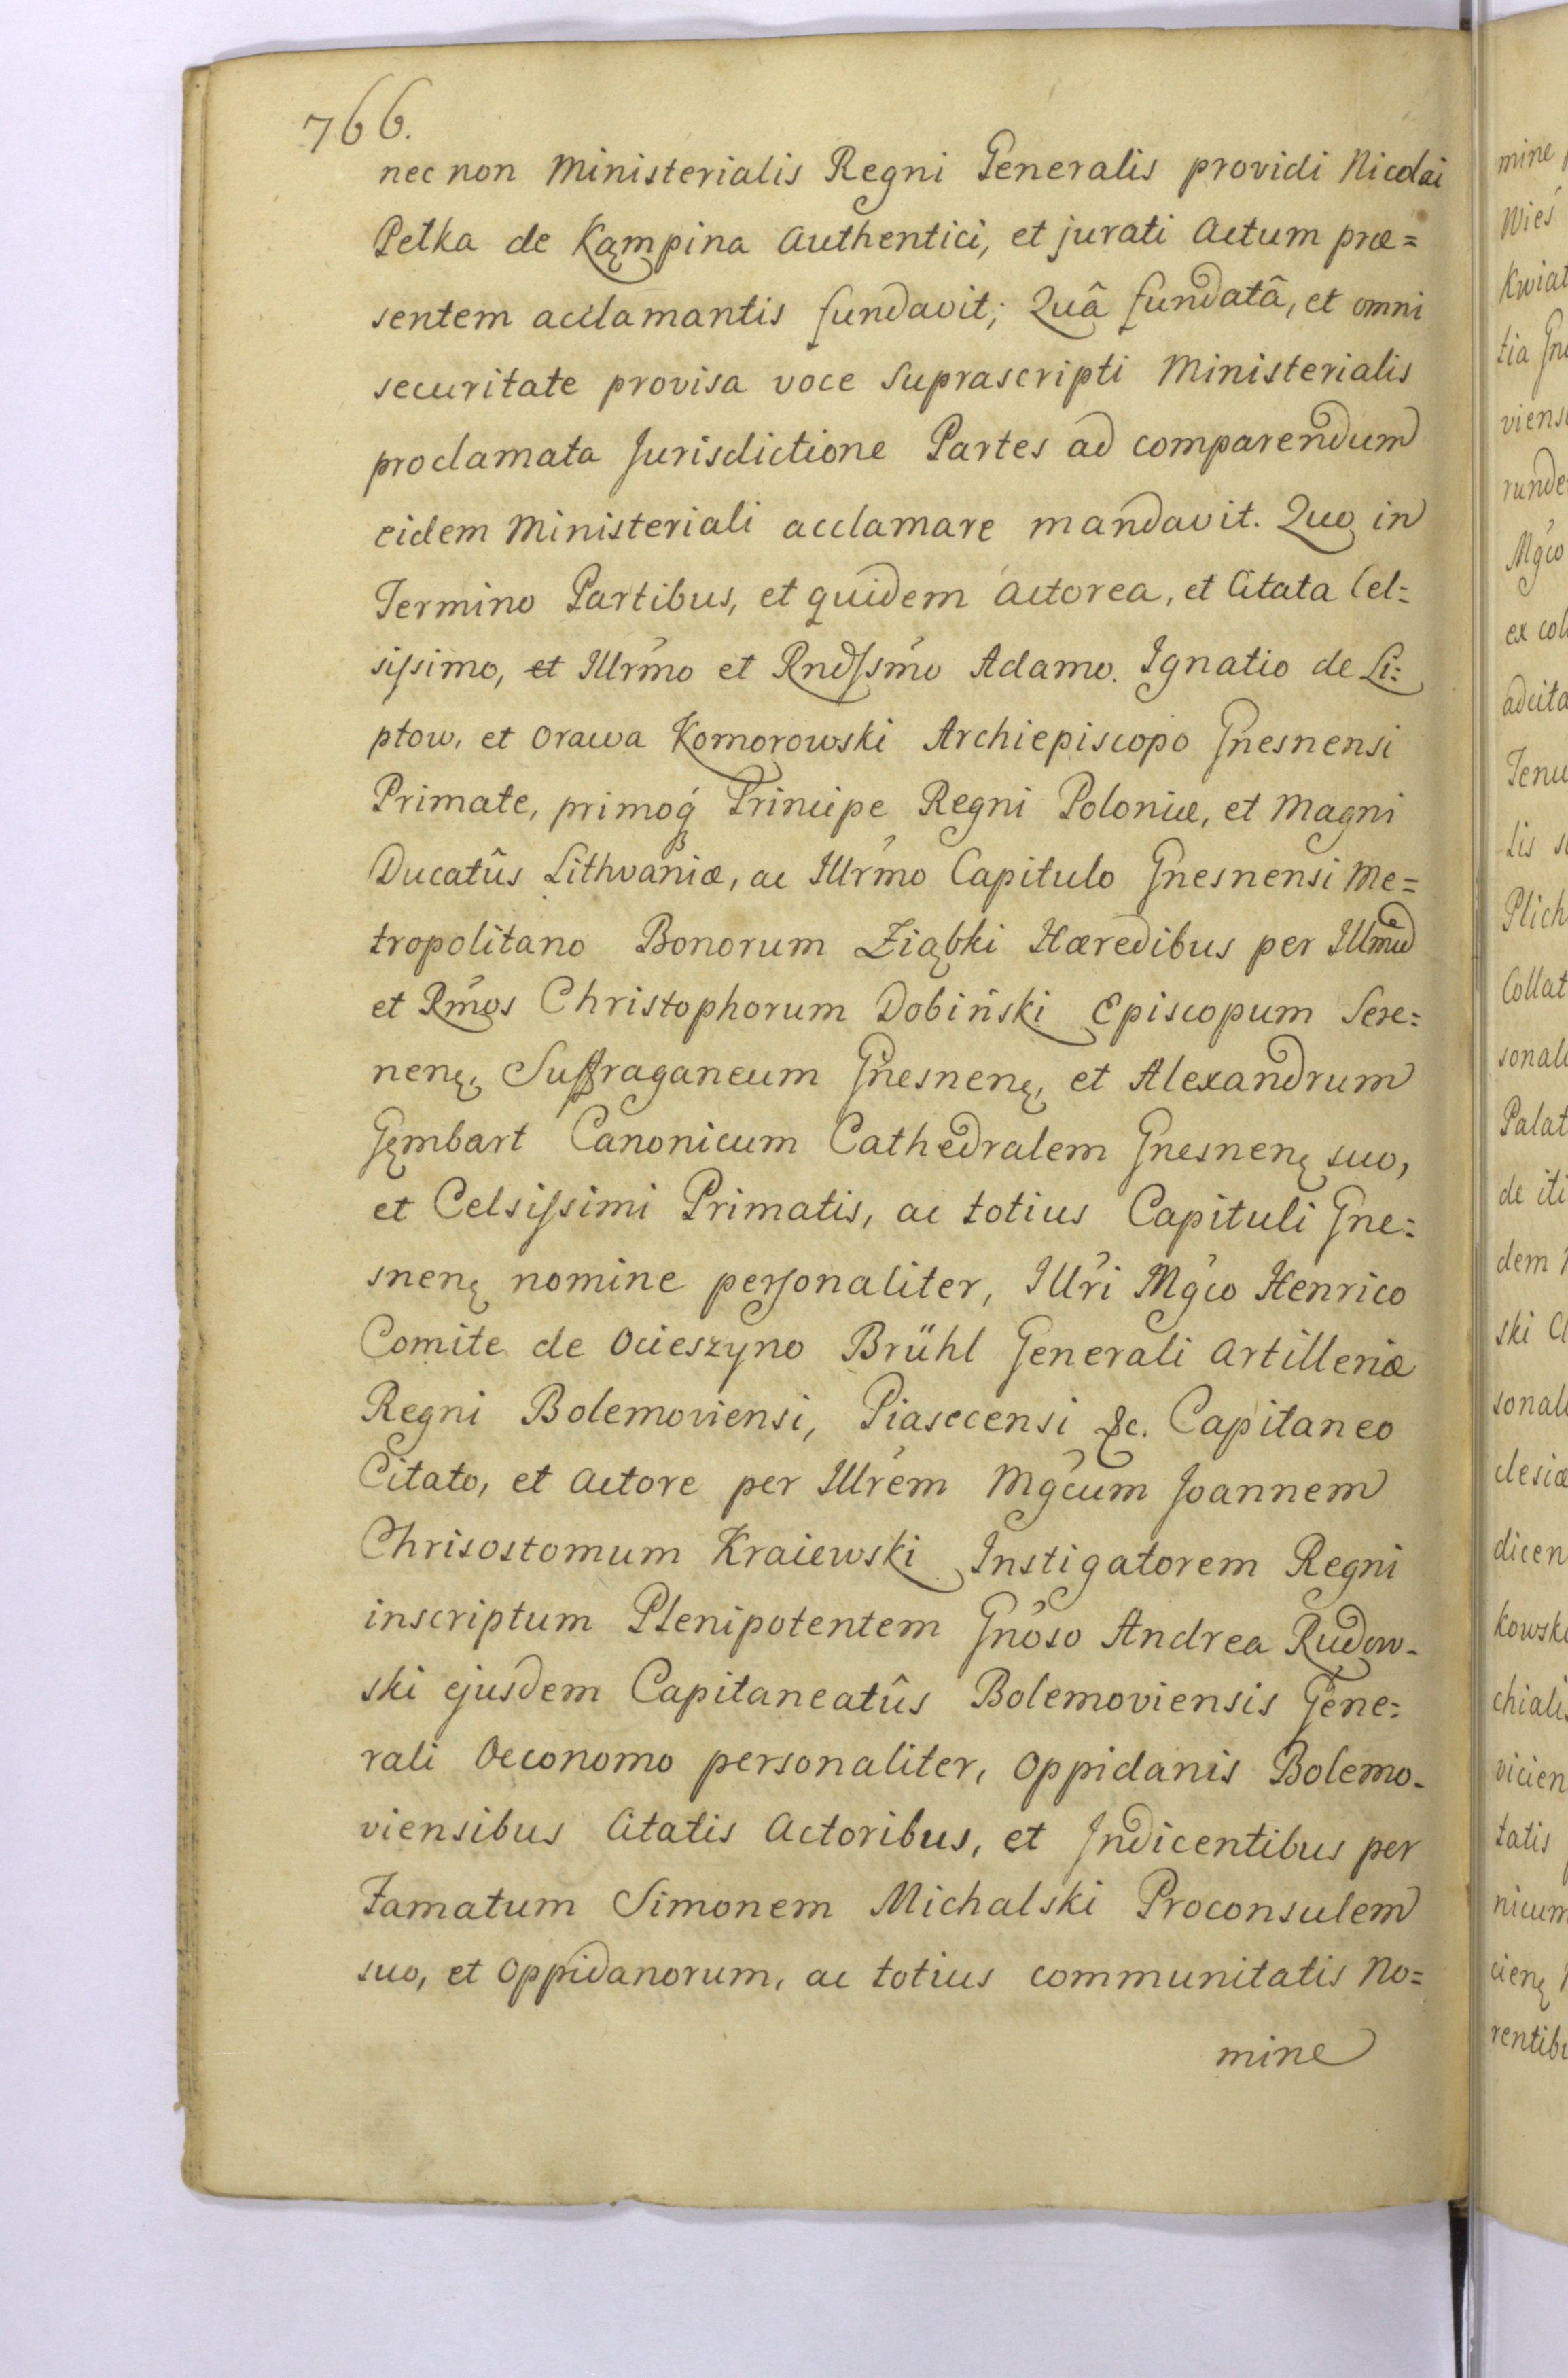 766.
nec non Ministerialis Regni Generalis providi Nicolai
Petka de Kąmpina Authentici, et jurati Actum præ=
sentem acclamantis fundavit; Quâ fundatâ, et omni
securitate provisa voce Suprascripti Ministerialis
proclamata Jurisdictione Partes ad comparendum
eidem Ministeriali acclamare mandavit. Quo in
Termino Partibus, et quidem Actorea, et Citata Cel=
sissimo, et Illrmo et Rndssmo Adamo. Ignatio de Li=
ptow, et Orawa Komorowski Archiepiscopo Gnesnensi
Primate, primoq́ Principe Regni Poloniæ, et Magni
Ducatûs Lithvaniæ, ac Illrmo Capitulo Gnesnensi Me=
tropolitano Bonorum Ziąbki Hæredibus per Illmu
et Rmos Christophorum Dobiński Episcopum Sere=
nenę, Suffraganeum Gnesnenę, et Alexandrum
Gęmbart Canonicum Cathedralem Gnesnenę suo,
et Celsissimi Primatis, ac totius Capituli Gne=
snenę nomine personaliter, Illri Mgco Henrico
Comite de Ocieszyno Brühl Generali Artilleriæ
Regni Bolemoviensi, Piasecensi &c. Capitaneo
Citato, et Actore per Illrem Mgcum Joannem
Chrisostomum Kraiewski Instigatorem Regni
inscriptum Plenipotentem Gnoso Andrea Rudow-
ski ejusdem Capitaneatûs Bolemoviensis Gene=
rali Oeconomo personaliter, Oppidanis Bolemo-
viensibus Citatis Actoribus, et Indicentibus per
Famatum Simonem Michalski Proconsulem
suo, et Oppidanorum, ac totius communitatis No=
mine
mine
Wieś
Kwiat
tia Gn
viens
runde
Mgco
ex col
adcita
Tenu
tis s
Plich
Collat
sonal
Palat
de iti
dem
ski
sonal
clesiæ
dicen
kowsk
chialis
vicien
tatis
nicum
cienę
rentib